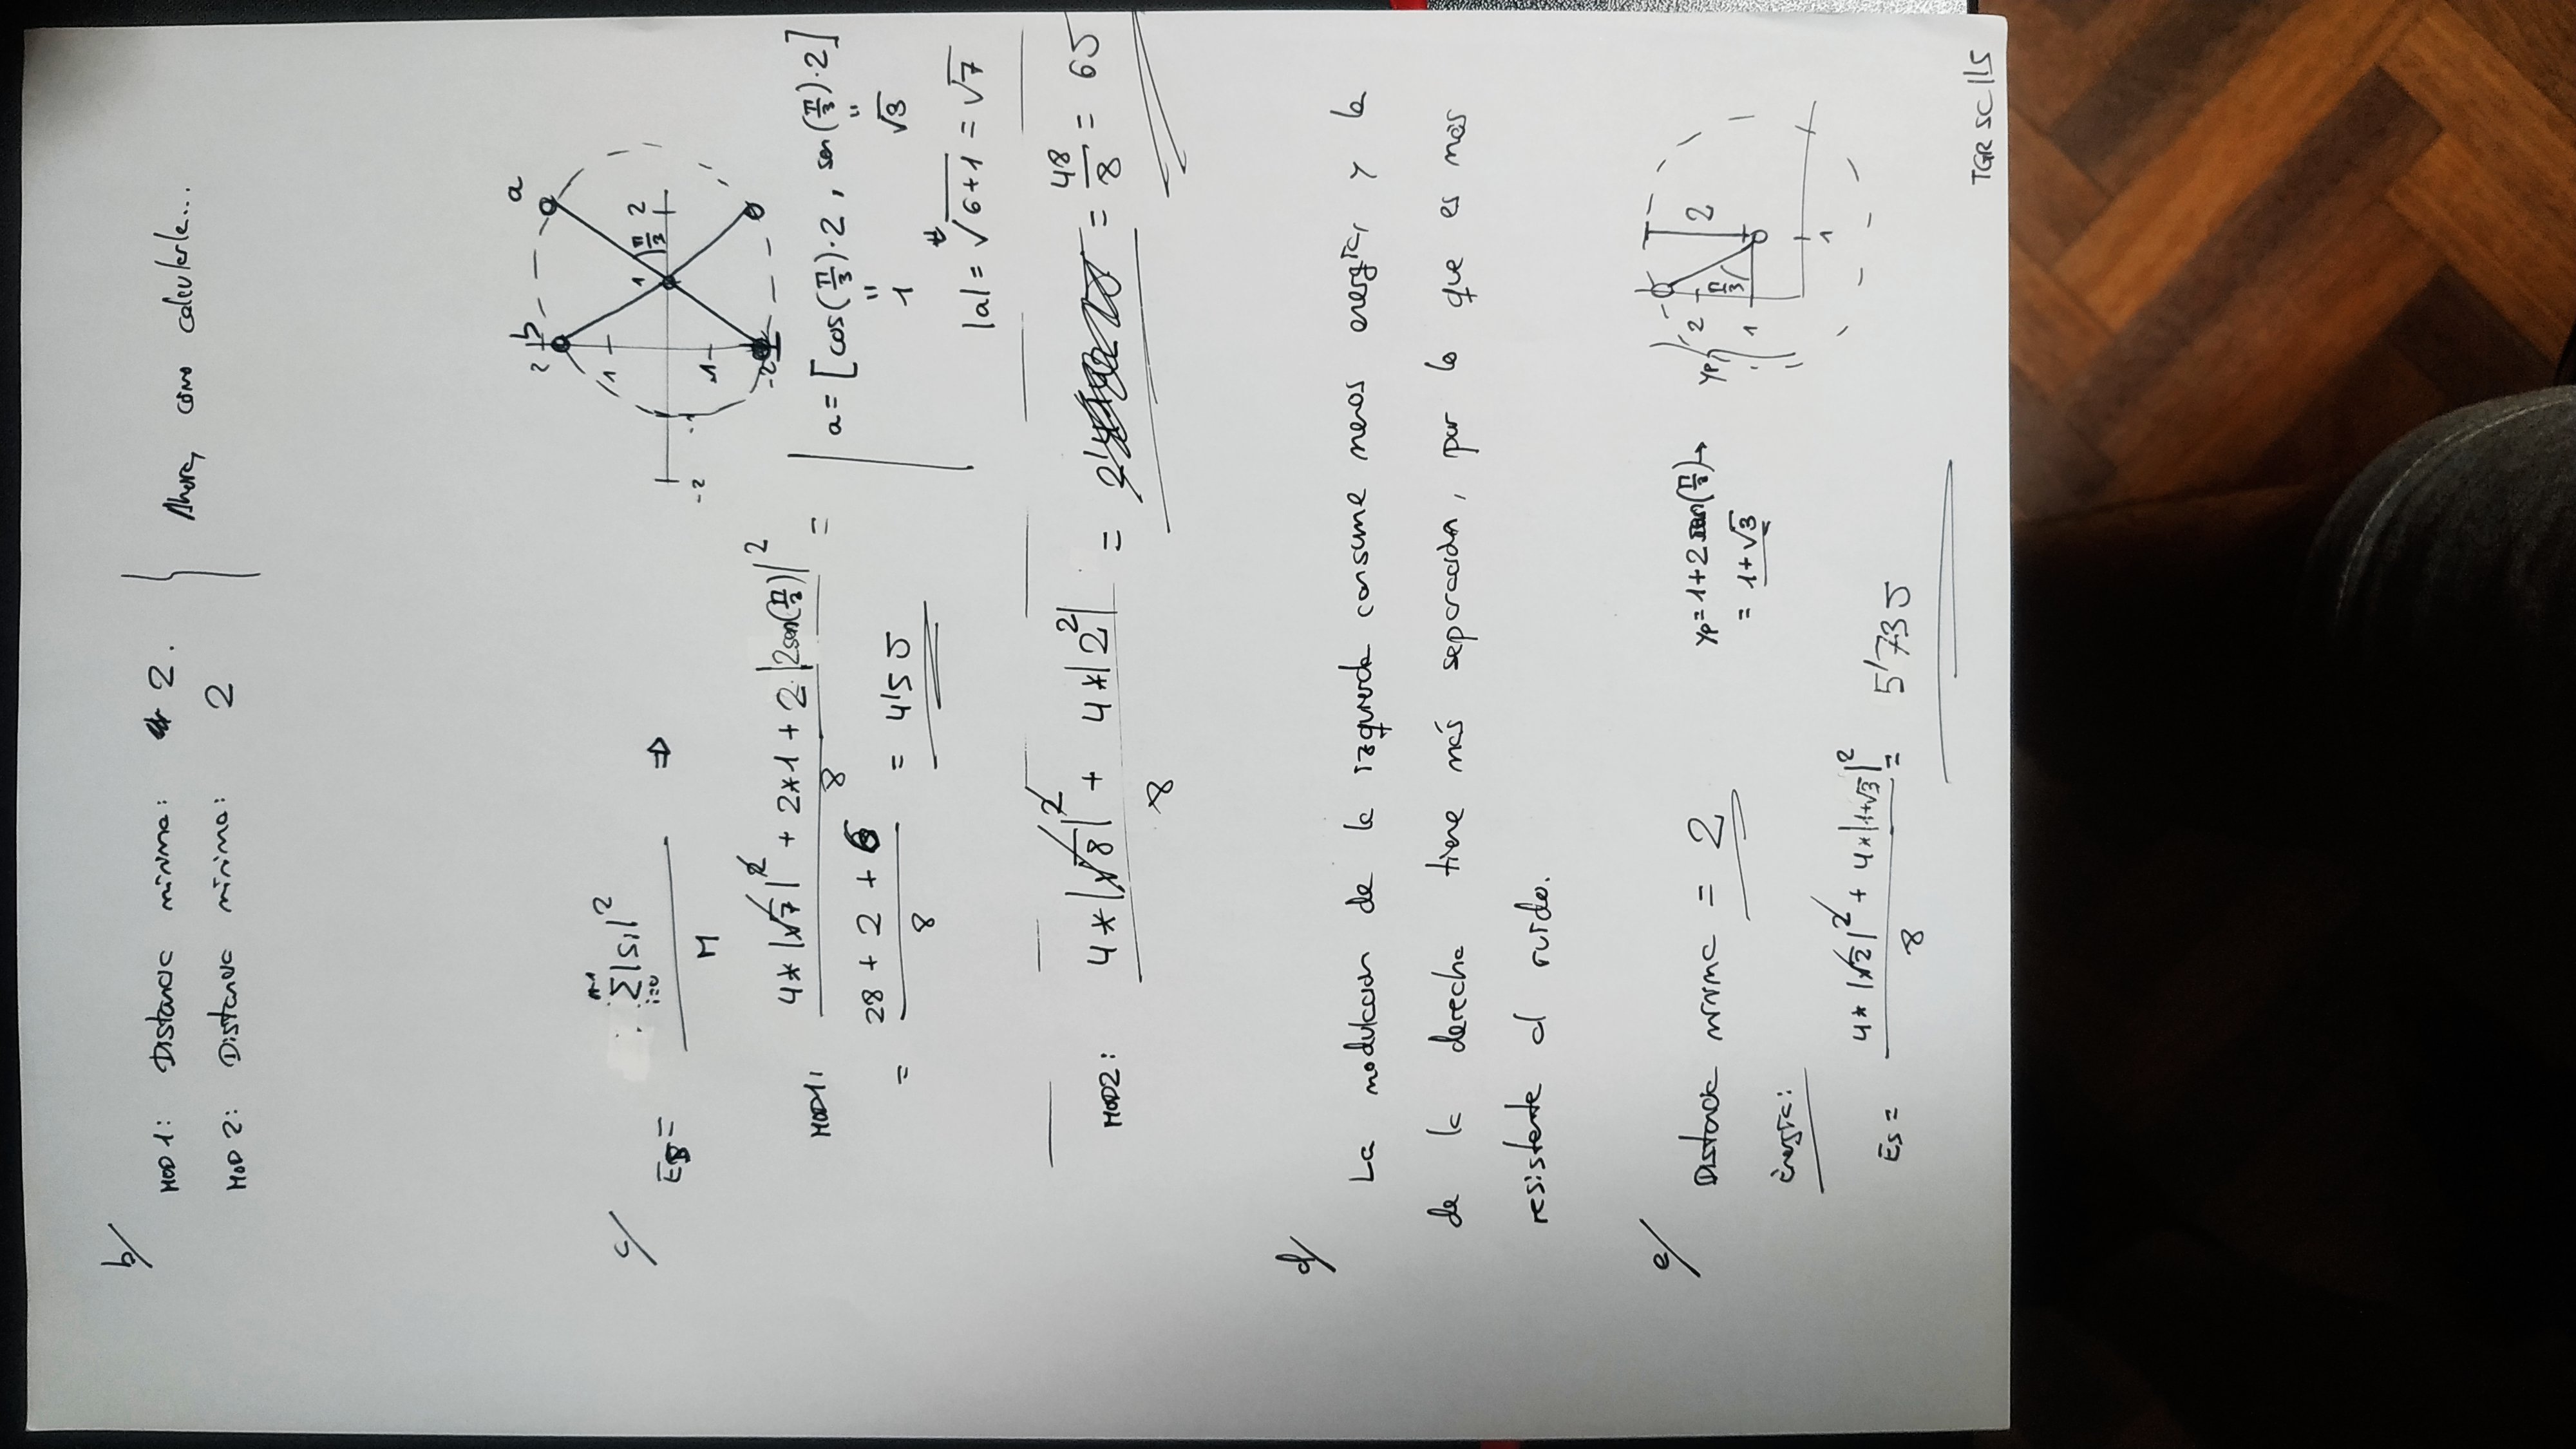 b/
MOD 1: Distancia mínima: 2.
MOD 2: Distancia mínima: 2
} Ahora, como calcularla...
c/
Es = ∑|si|² / M ⇒
i=0
b a
2 1 -1 -2
-2 -1 1 2
π/3
MOD1: (4*|√7|² + 2*1 + 2·|2sen(π/3)|²) / 8 =
= (28 + 2 + 6) / 8 = 4'5 J
a = [cos(π/3)·2, sen(π/3)·2]
" "
1 √3
|a| = √(6+1) = √7
MOD2: (4*|√8|² + 4*|2²|) / 8 = = 48/8 = 6 J
d/ La modulación de la izquierda consume menos energía, y la
de la derecha tiene más separación, por lo que es más
resistente al ruido.
e/ Distancia mínima = 2
yp = 1+2sen(π/3) →
= 1+√3
yp 2 1 π/3 2 1
Energía:
Es = (4*|√2|² + 4*|1+√3|²) / 8 = 5'73 J
TGR SC/15